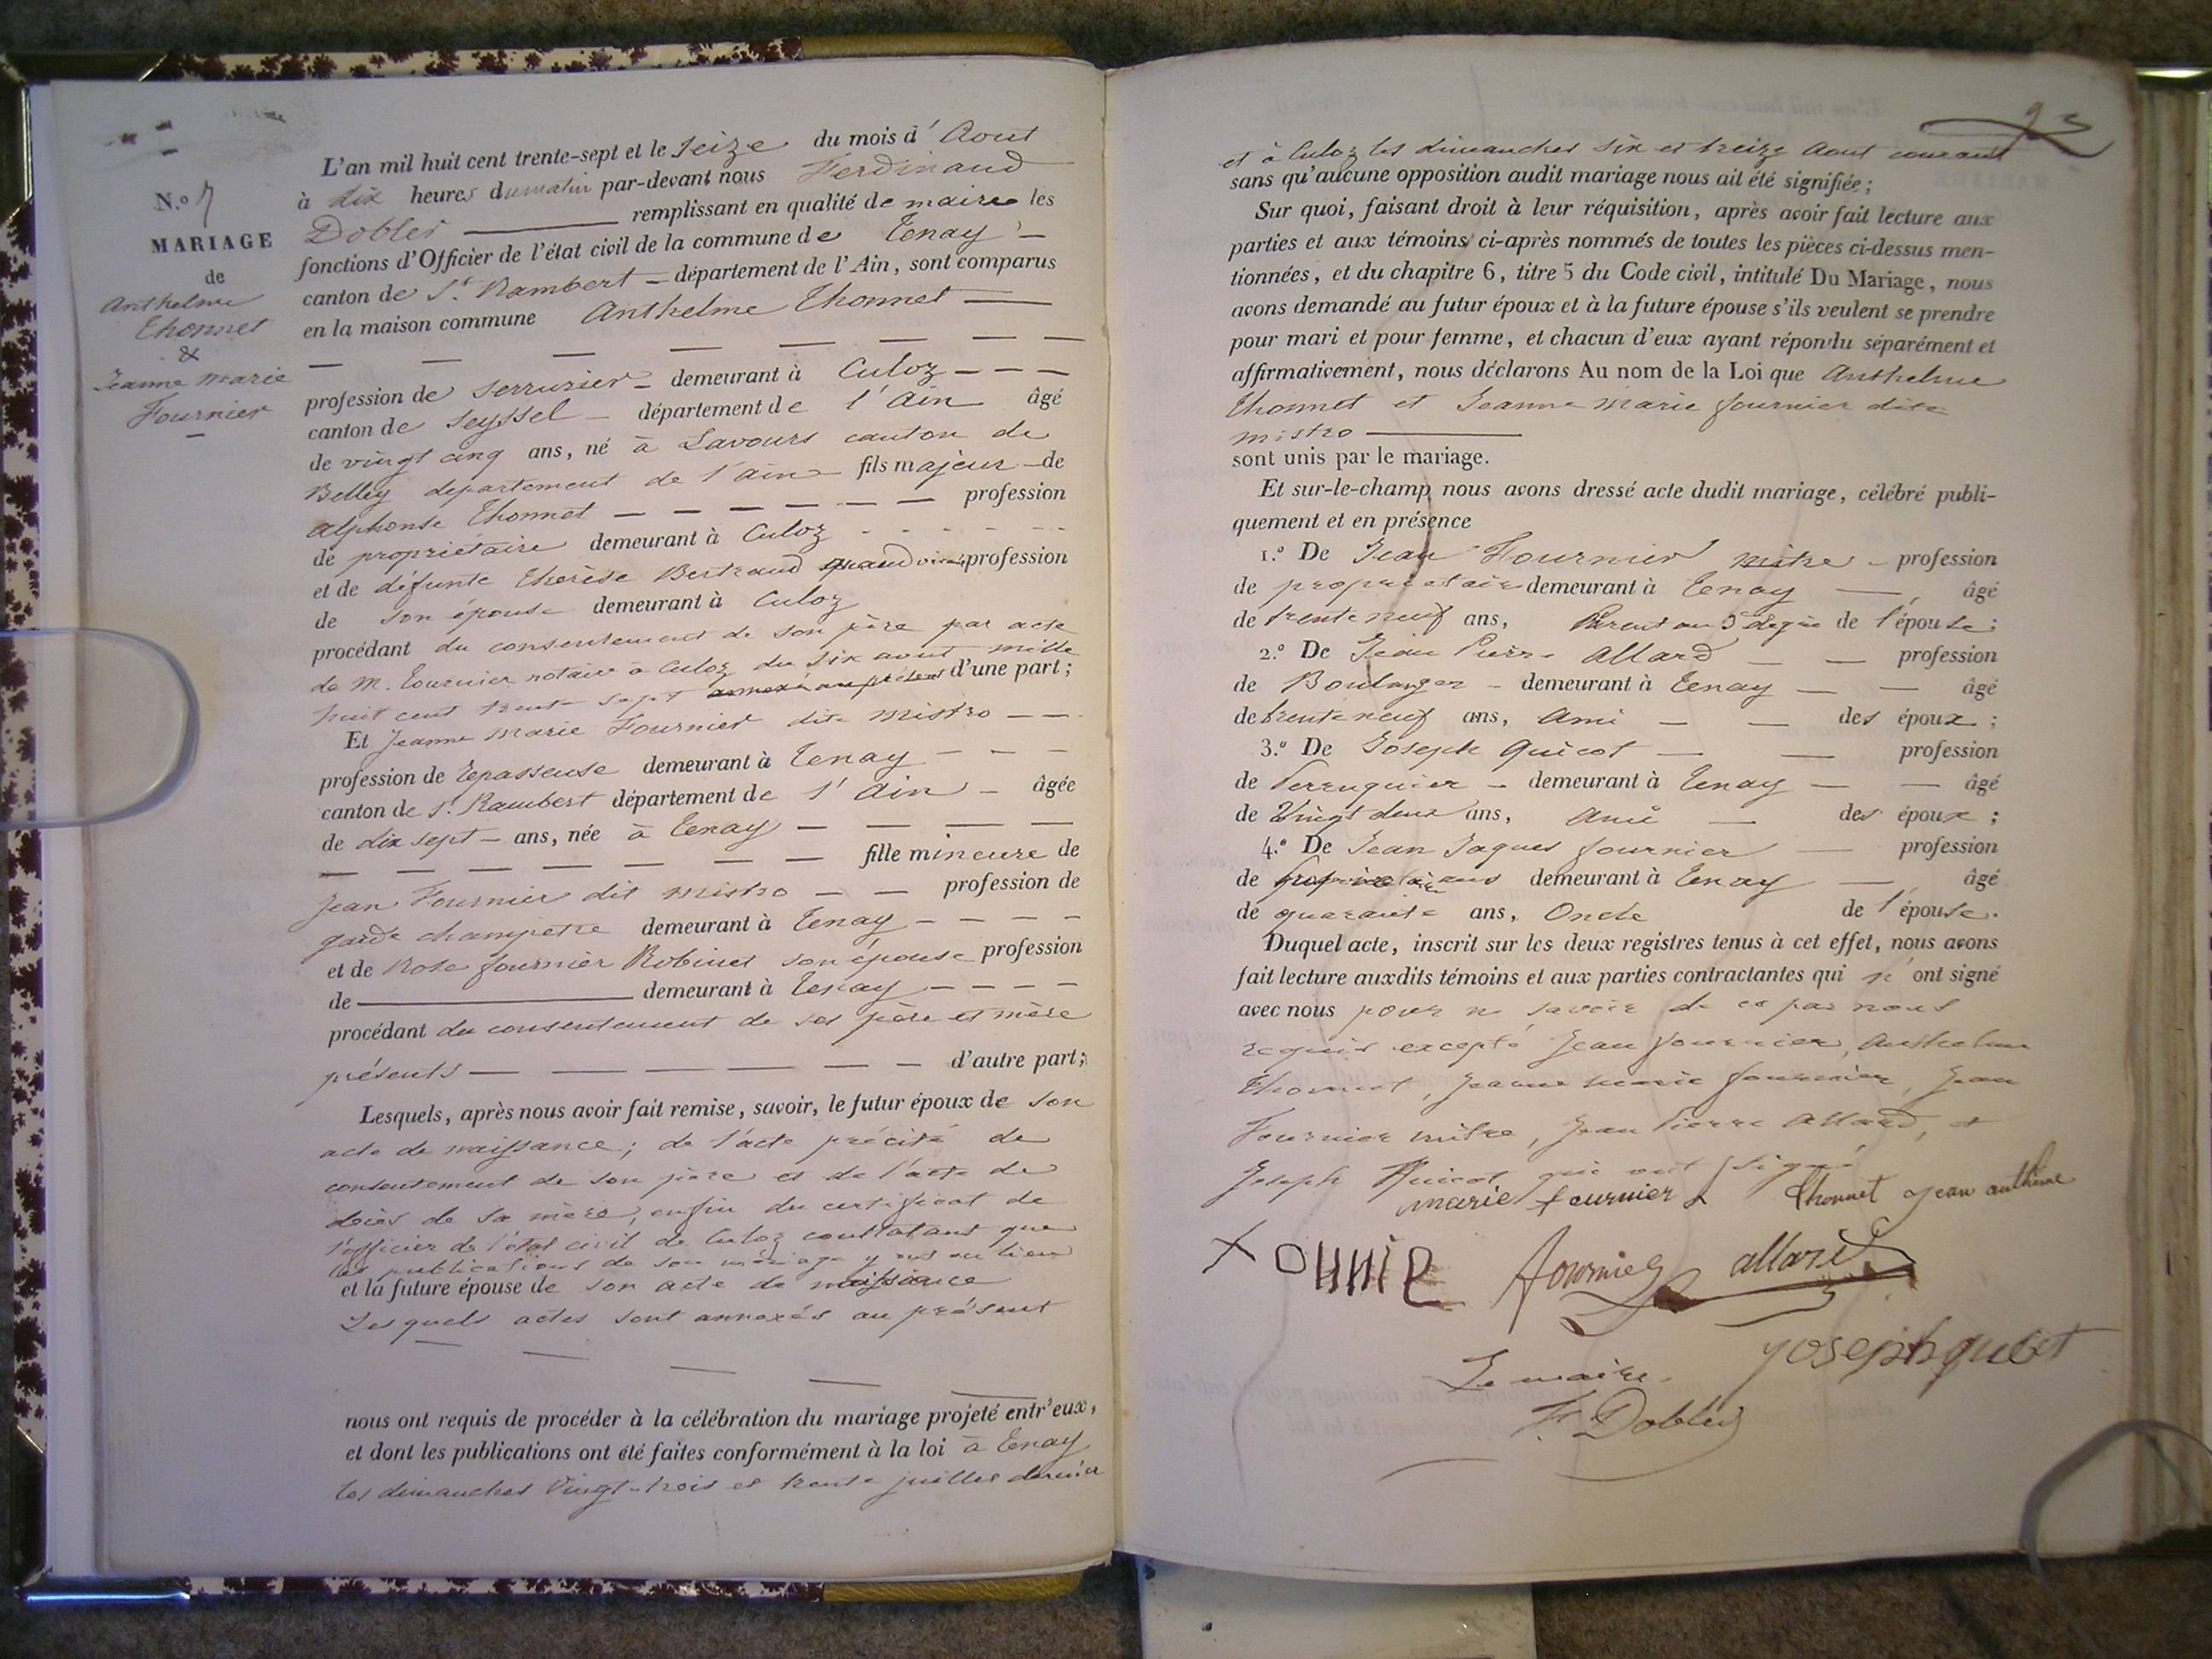 N.º 7
MARIAGE
de
Anthelme
Thonnet
&
Jeanne Marie
Fournier
L'an mil huit cent trente-sept et le seize du mois d'Aout
à dix heures du matin par-devant nous Ferdinand
Dobler remplissant en qualité de maire les
fonctions d'Officier de l'état civil de la commune de Tenay
canton de St. Rambert département de l'Ain, sont comparus
en la maison commune Anthelme Thonnet
profession de serrurier demeurant à Culoz
canton de Seyssel département de l'Ain âgé
de vingt cinq ans, né à Lavours canton de
Belley departement de l'ain fils majeur de
alphonse Thonnet profession
de propriétaire demeurant à Culoz
et de défunte Therèse Bertrand profession
de son épouse demeurant à Culoz
procédant du consentement de son père par acte
de M. Tournier notaire à Culoz du six aout mille
huit cent trente sept annexé au présent d'une part;
Et Jeanne Marie Fournier dite mistro
profession de repasseuse demeurant à Tenay
canton de St. Rambert département de l'Ain âgée
de dix sept ans, née à Tenay
fille mineure de
Jean Fournier dit mistro profession de
garde champetre demeurant à Tenay
et de Rose fournier Robinet son épouse profession
de demeurant à Tenay
procédant du consentement de ses père et mère
présents d'autre part;
Lesquels, après nous avoir fait remise, savoir, le futur époux de son
acte de naissance; de l'acte précité de
consentement de son père et de l'acte de
décès de sa mère, enfin du certificat de
l'officier de l'état civil de Culoz constatant que
les publications de son mariage y ont eu lieu
et la future épouse de son acte de naissance
Lesquels actes sont annexés au présent
nous ont requis de procéder à la célébration du mariage projeté entr'eux,
et dont les publications ont été faites conformément à la loi à Tenay
les dimanches vingt-trois et trente juillet dernier
et à Culoz les dimanches six et treize Aout courant
sans qu'aucune opposition audit mariage nous ait été signifiée;
Sur quoi, faisant droit à leur réquisition, après avoir fait lecture aux
parties et aux témoins ci-après nommés de toutes les pièces ci-dessus men-
tionnées, et du chapitre 6, titre 5 du Code civil, intitulé Du Mariage, nous
avons demandé au futur époux et à la future épouse s'ils veulent se prendre
pour mari et pour femme, et chacun d'eux ayant répondu séparément et
affirmativement, nous déclarons Au nom de la Loi que Anthelme
Thonnet et Jeanne Marie fournier dite
mistro
sont unis par le mariage.
Et sur-le-champ nous avons dressé acte dudit mariage, célébré publi-
quement et en présence
1.º De Jean Fournier mitre profession
de propriétaire demeurant à Tenay âgé
de trente neuf ans, Parent au 5 degré de l'épouse;
2.º De Jean Pierre Allard profession
de Boulanger demeurant à Tenay âgé
de trente neuf ans, Ami des époux;
3.º De Joseph Quicot profession
de Perruquier demeurant à Tenay âgé
de Vingt deux ans, Ami des époux;
4.º De Jean Jaques fournier profession
de demeurant à Tenay âgé
de quarante ans, Oncle de l'épouse.
Duquel acte, inscrit sur les deux registres tenus à cet effet, nous avons
fait lecture auxdits témoins et aux parties contractantes qui n'ont signé
avec nous pour ne savoir de ce par nous
requis excepté Jean fournier, Anthelme
Thonnet, Jeanne Marie fournier, Jean
Fournier mitre, Jean Pierre Allard, et
Joseph Quicot qui ont signé
marie fournier Thonnet Jean anthelme
fournier allard
Le maire
joseph quicot
F. Dobler